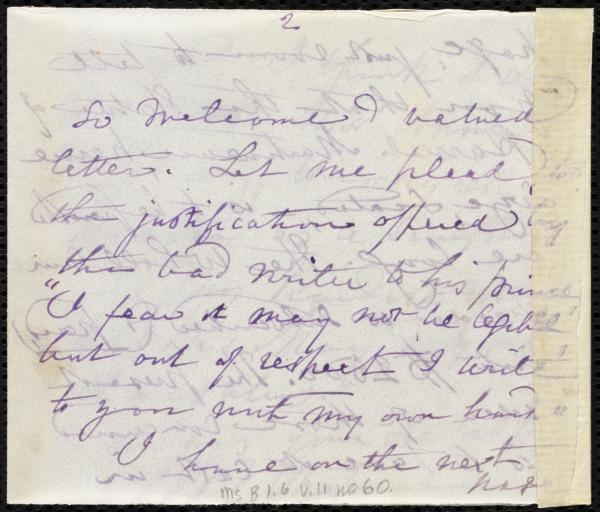 2
So welcome & valued
letter. Let me plead
the justification offered
the bad writer to his
"I fear it may not be legib
but out of respect I write
to you with my own hand"
I have on the next
Ms. B. 1.6 V. 11 no 60.